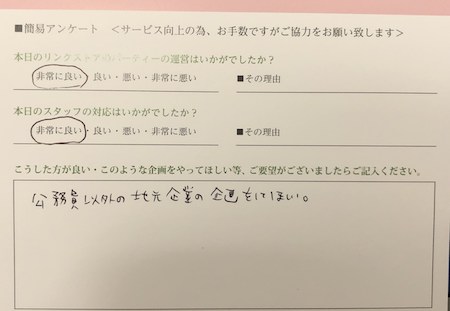 ■簡易アンケート ＜サービス向上の為、お手数ですがご協力をお願い致します＞
本日のリンクストアのパーティーの運営はいかがでしたか？
非常に良い・良い・悪い・非常に悪い ■その理由
本日のスタッフの対応はいかがでしたか？
非常に良い・良い・悪い・非常に悪い ■その理由
こうした方が良い・このような企画をやってほしい等、ご要望がございましたらご記入ください。
公務員以外の地元企業の企画をしてほしい。